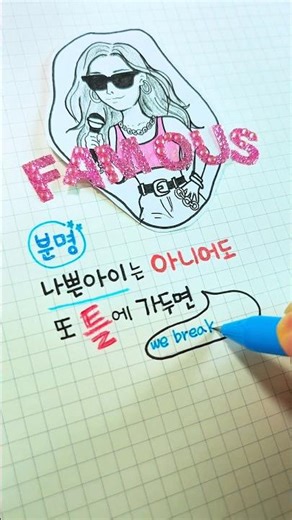 FAMOUS
분명
나쁜아이는 아니어도
또 틀에 가두면
we break